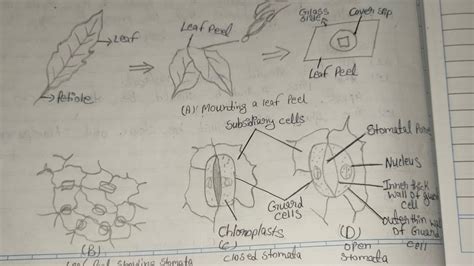 Leaf
Petiole
Leaf Peel
Glass
slide
Cover slip
Leaf Peel
(A) Mounting a leaf Peel
Subsidiary cells
Guard
cells
Chloroplasts
(B)
(C)
closed Stomata
Stomatal Pore
Nucleus
Inner thick
wall of guard
cell
Outer thin wall
of Guard
cell
(D)
open
Stomata
Stomata